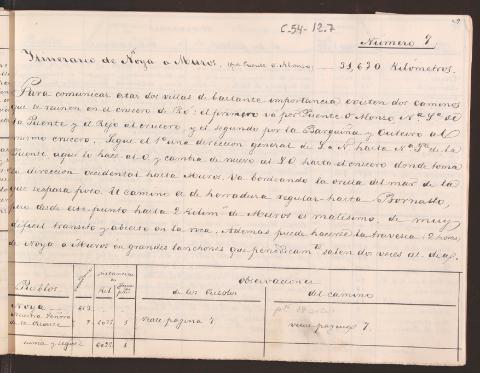 C.54-12.7
Número 7
Itinerario de Noya a Muros. (por Puente D. Alonso) 31,670 Kilómetros.
Para comunicar estas dos villas de bastante importancia existen dos caminos
que se reunen en el crucero de Roo: el primero va por Puente D. Alonso, Nª Sª de
la Puente y el Rejo al crucero, y el segundo por la Barquiña y Outeiro al
mismo crucero. Sigue el 1º una direccion general de S a N hasta Nª Sª de la
Puente aquí lo hace al O y cambia de nuevo al S O hasta el crucero donde toma
la direccion occidental hasta Muros. Va bordeando la orilla del mar de la
que se separa poco. El camino es de herradura regular hasta Bornalle,
desde este punto hasta 2 kilóm. de Muros es malísimo, de muy
dificil transito y abierto en la roca. Ademas puede hacerse la travesia (2 horas)
de Noya a Muros en grandes lanchones que salen dos veces al dia.
Pueblos
distancias
Kil.
observaciones
de los Pueblos
del camino
Noya
Nuestra Señora
de la Puente
vease pagina 7
vease pagina 7.
suma y sigue